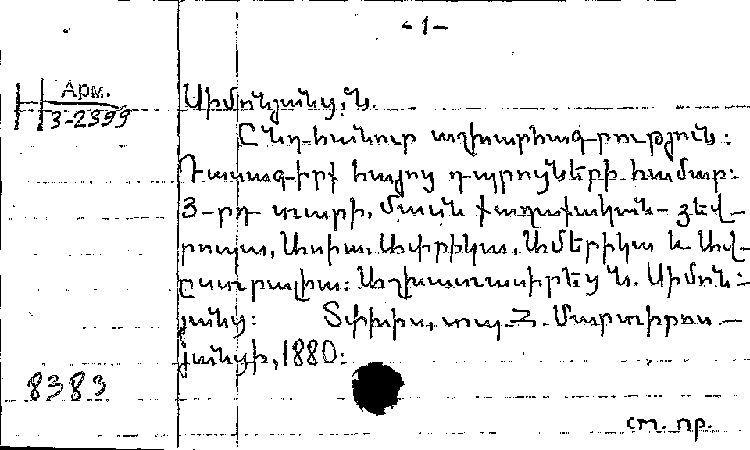 -1-
Арм.
3-2399
Սիմոնյանց, Ն.
Ընդհանուր աշխարհագրություն:
Դասագիրք հայոց դպրոցների համար:
3-րդ տարի. Մասն քաղաքական - Եվ-
րոպա, Ասիա, Աֆրիկա, Ամերիկա և Ավ-
ըստրալիա: Աշխատասիրեց Ն. Սիմոն-
յանց: Տփխիս, տպ. Հ. Մարտիրոս-
յանցի, 1880:
8383
ст. пр.